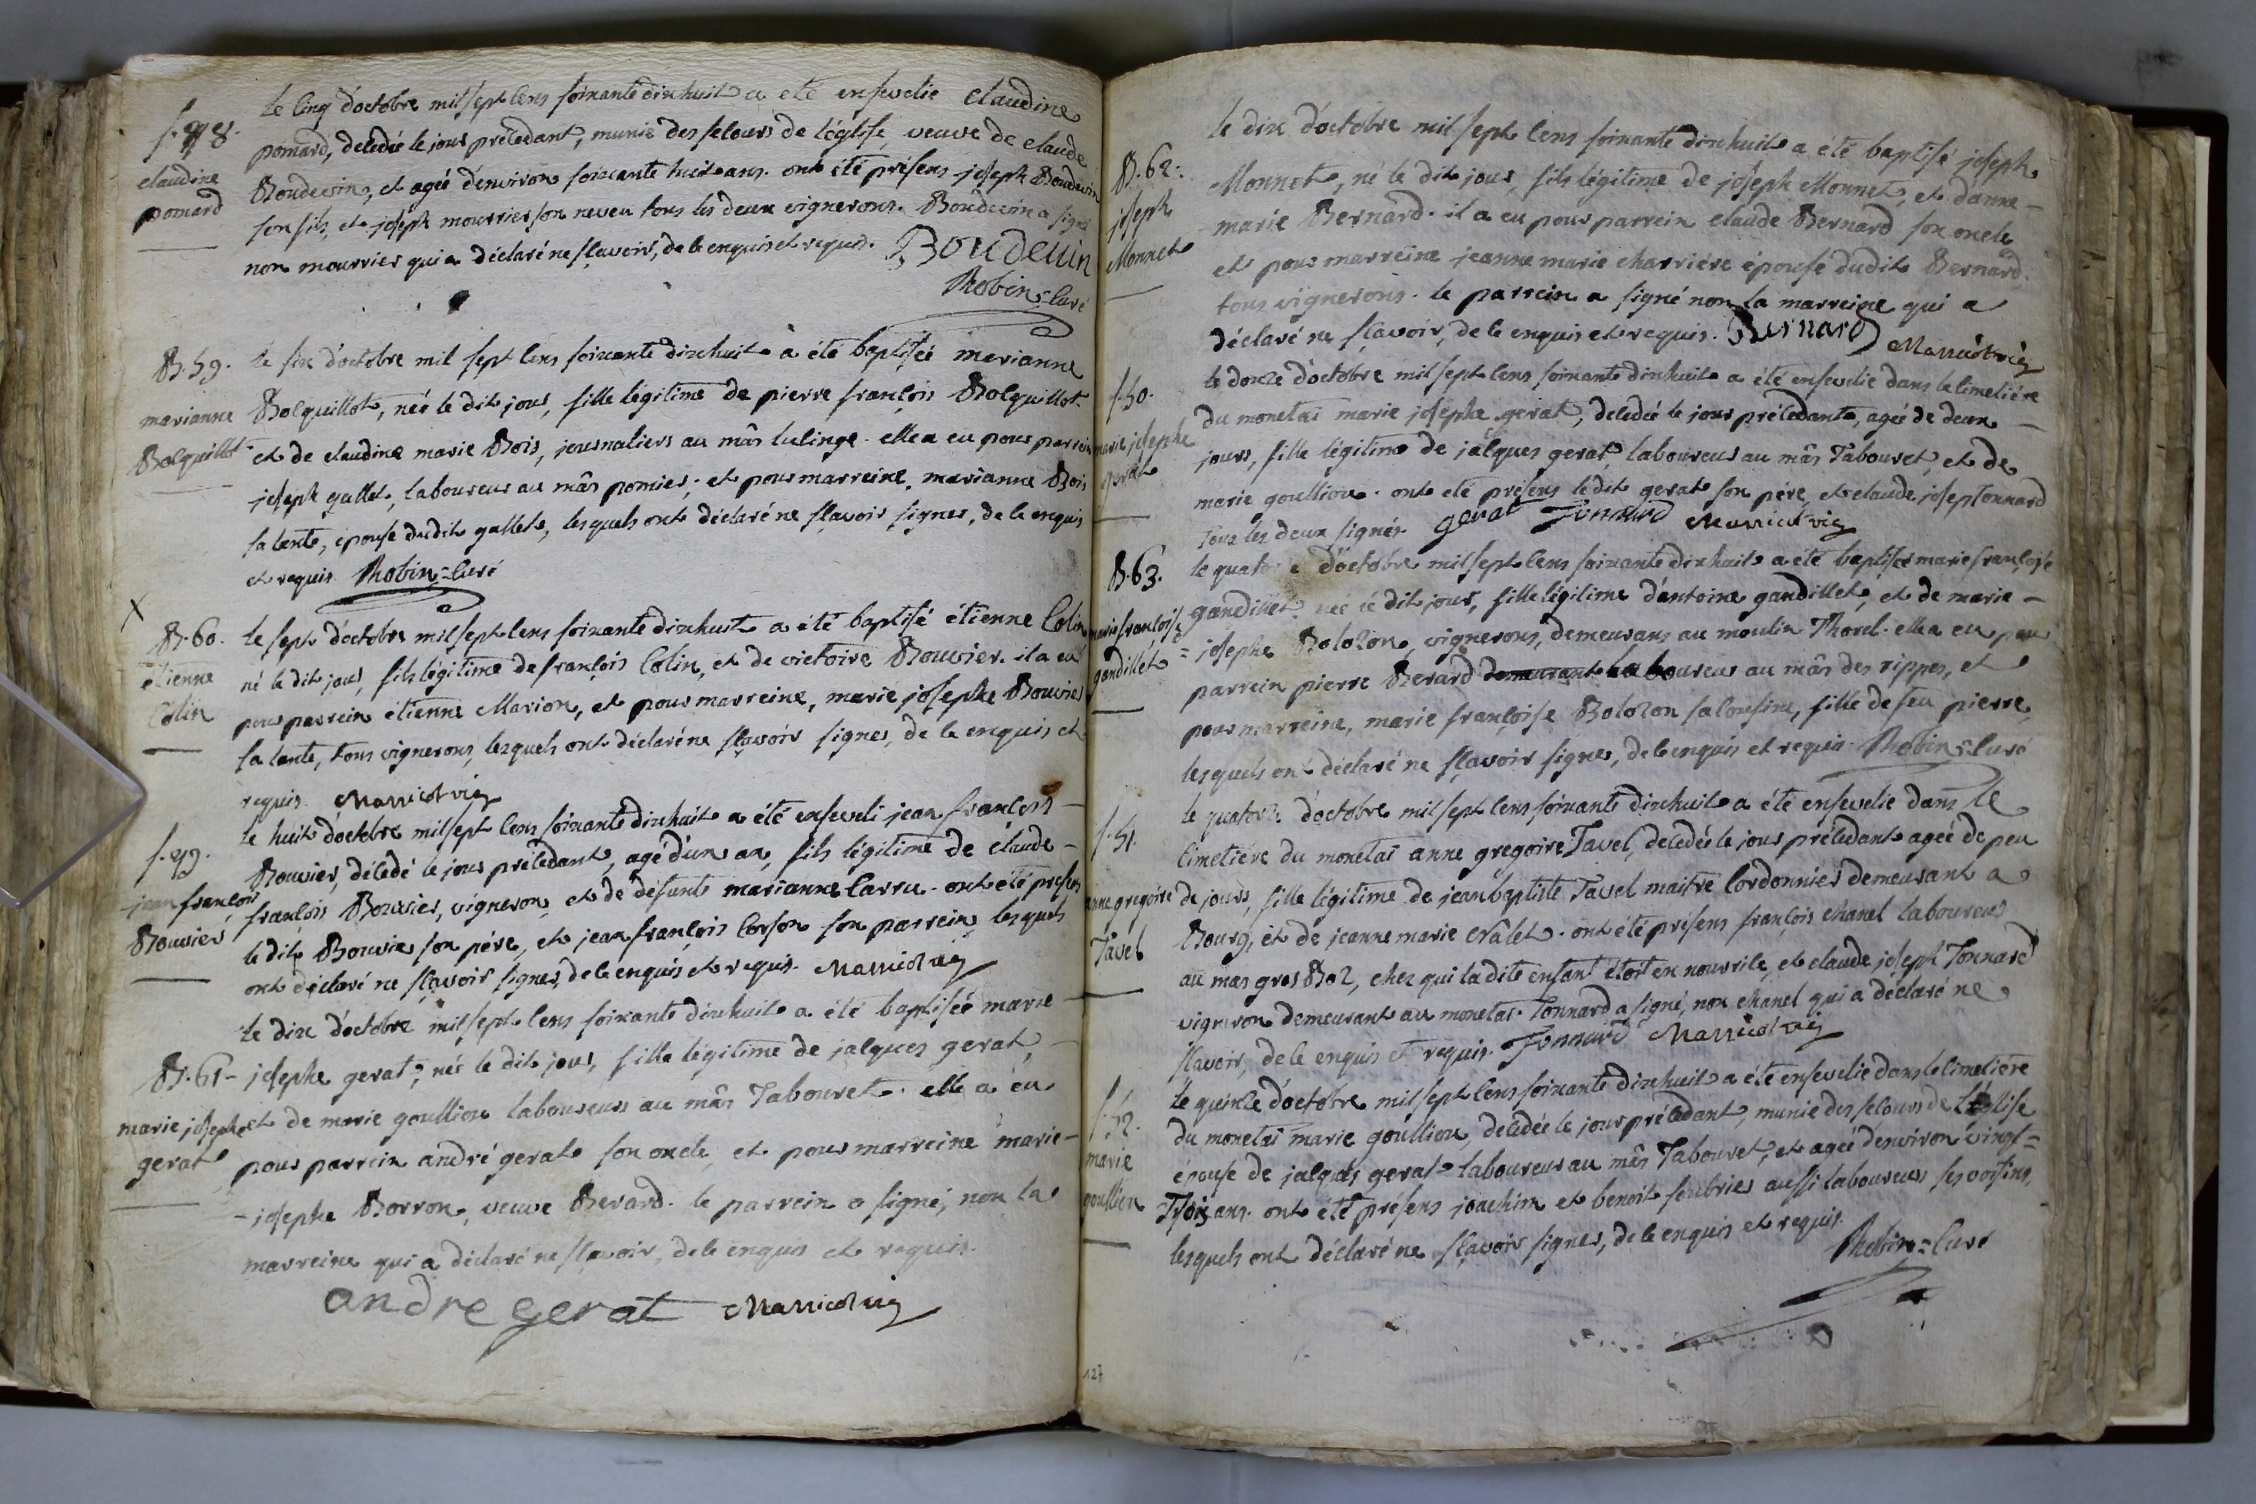 S. 48.
claudine
pomard
Le cinq d'octobre mil sept cens soixante dixhuit a été ensevelie claudine
pomard, decedée le jour précedant, munie des secours de l'église, veuve de claude
Boudevin, et agée d'environ soixante huit ans. ont été présens joseph Boudevin
son fils, et joseph mourrier son neveu tous les deux vignerons. Boudevin a signé
non mourrier qui a déclaré ne sçavoir, de ce enquis et requis. Boudevin
Robin = Curé
B. 59.
marianne
Bolquillot
le six d'octobre mil sept cens soixante dixhuit a été baptisée marianne
Bolquillot, née le dit jour, fille légitime de pierre françois Bolquillot
et de claudine marie Bois, journaliers au mâs lulinge. elle a eu pour parrein
joseph gallet, laboureur au mâs pomier, et pour marreine, marianne Bois
sa tante, épouse dudit gallet, lesquels ont déclaré ne sçavoir signer, de ce enquis
et requis. Robin = Curé
X
B. 60.
étienne
Colin
le sept d'octobre mil sept cens soixante dixhuit a été baptisé étienne Colin
né le dit jour, fils légitime de françois Colin, et de victoire Bouvier. il a eu
pour parrein étienne Marion, et pour marreine, marie josephe Bouvier
sa tante, tous vignerons, lesquels ont déclaré ne sçavoir signer, de ce enquis et
requis.
S. 49.
jean françois
Bouvier
le huit d'octobre mil sept cens soixante dixhuit a été enseveli jean françois
Bouvier, décédé le jour précedant, agé d'un an, fils légitime de claude
françois Bouvier, vigneron, et de défunte marianne Carru. ont été présens
le dit Bouvier son père, et jean françois Corson son parrein, lesquels
ont déclaré ne sçavoir signer, de ce enquis et requis.
B. 61
marie josephe
gerat
le dix d'octobre mil sept cens soixante dixhuit a été baptisée marie
josephe gerat, née le dit jour, fille légitime de jacques gerat,
et de marie goullion laboureurs au mâs Tabouret. elle a eu
pour parrein andré gerat son oncle, et pour marreine marie
josephe Borron, veuve Berard. le parrein a signé, non la
marreine qui a déclaré ne sçavoir, de ce enquis et requis.
andre gerat
B. 62.
joseph
Monnet
le dix d'octobre mil sept cens soixante dixhuit a été baptisé joseph
Monnet, né le dit jour, fils légitime de joseph Monnet, et d'anne
marie Bernard. il a eu pour parrein claude Bernard son oncle
et pour marreine jeanne marie charriére épouse dudit Bernard
tous vignerons. le parrein a signé non la marreine qui a
déclaré ne sçavoir, de ce enquis et requis. Bernard
S. 50.
marie josephe
gerat
le douze d'octobre mil sept cens soixante dixhuit a été ensevelie dans le cimetiére
du monetai marie josephe gerat, decedée le jour précedant, agée de deux
jours, fille légitime de jacques gerat, laboureur au mâs Tabouret, et de
marie goullion. ont été présens ledit gerat son pére, et claude josep Tonnard
tous les deux signés. gerat Tonnard
B. 63.
marie françoise
gandillet
le quatorze d'octobre mil sept cens soixante dixhuit a été baptisée marie françoise
gandillet née le dit jour, fille légitime d'antoine gandillet, et de marie
josephe Bolozon, vignerons, demeurans au moulin Thorel. elle a eu pour
parrein pierre Berard demeurant laboureur au mâs des rippes, et
pour marreine, marie françoise Bolozon sa cousine, fille de feu pierre,
lesquels ont déclaré ne sçavoir signer, de ce enquis et requis. Robin = Curé
S. 51.
anne gregoire
Tavel
le quatorze d'octobre mil sept cens soixante dixhuit a été ensevelie dans le
cimetiére du monetai anne gregoire Tavel, decedée le jour précedant agée de peu
de jours, fille légitime de jean baptiste Tavel maitre Cordonnier demeurant a
Bourg, et de jeanne marie crâlet. ont été présens françois chanel laboureur
au mas gros Boz, chez qui ladite enfant étoit en nourrice, et claude joseph Tonnard
vigneron demeurant au monetai. Tonnard a signé, non chanel qui a déclaré ne
sçavoir, de ce enquis et requis. Tonnard
S. 52.
marie
goullion
le quinze d'octobre mil sept cens soixante dixhuit a été ensevelie dans le cimetiére
du monetai marie goullion, decedée le jour précedant, munie des secours de l'église
épouse de jacques gerat laboureur au mâs Tabouret, et agée d'environ vingt=
Trois ans. ont été présens joachim et benoit soubrier aussi laboureurs ses voisins,
lesquels ont déclaré ne sçavoir signer, de ce enquis et requis.
Robin = Curé
127